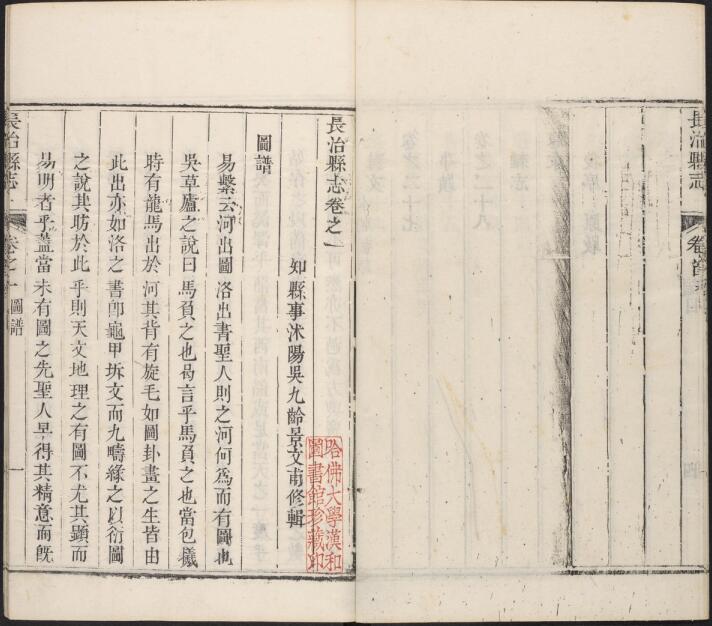 長治縣志
卷首
四
長治縣志卷之一
知縣事沭陽吳九齡景文甫修輯
哈佛大學漢和
圖書館珍藏印
圖譜
易繫云河出圖洛出書聖人則之河何為而有圖也
吳草廬之說曰馬負之也曷言乎馬負之也當包犧
時有龍馬出於河其背有旋毛如圖卦畫之生皆由
此出亦如洛之書卽龜甲坼文而九疇緣之以衍圖
之說其昉於此乎則天文地理之有圖不尤其顯而
易明者乎蓋當未有圖之先聖人早得其精意而旣
長治縣志
卷之一
圖譜
一